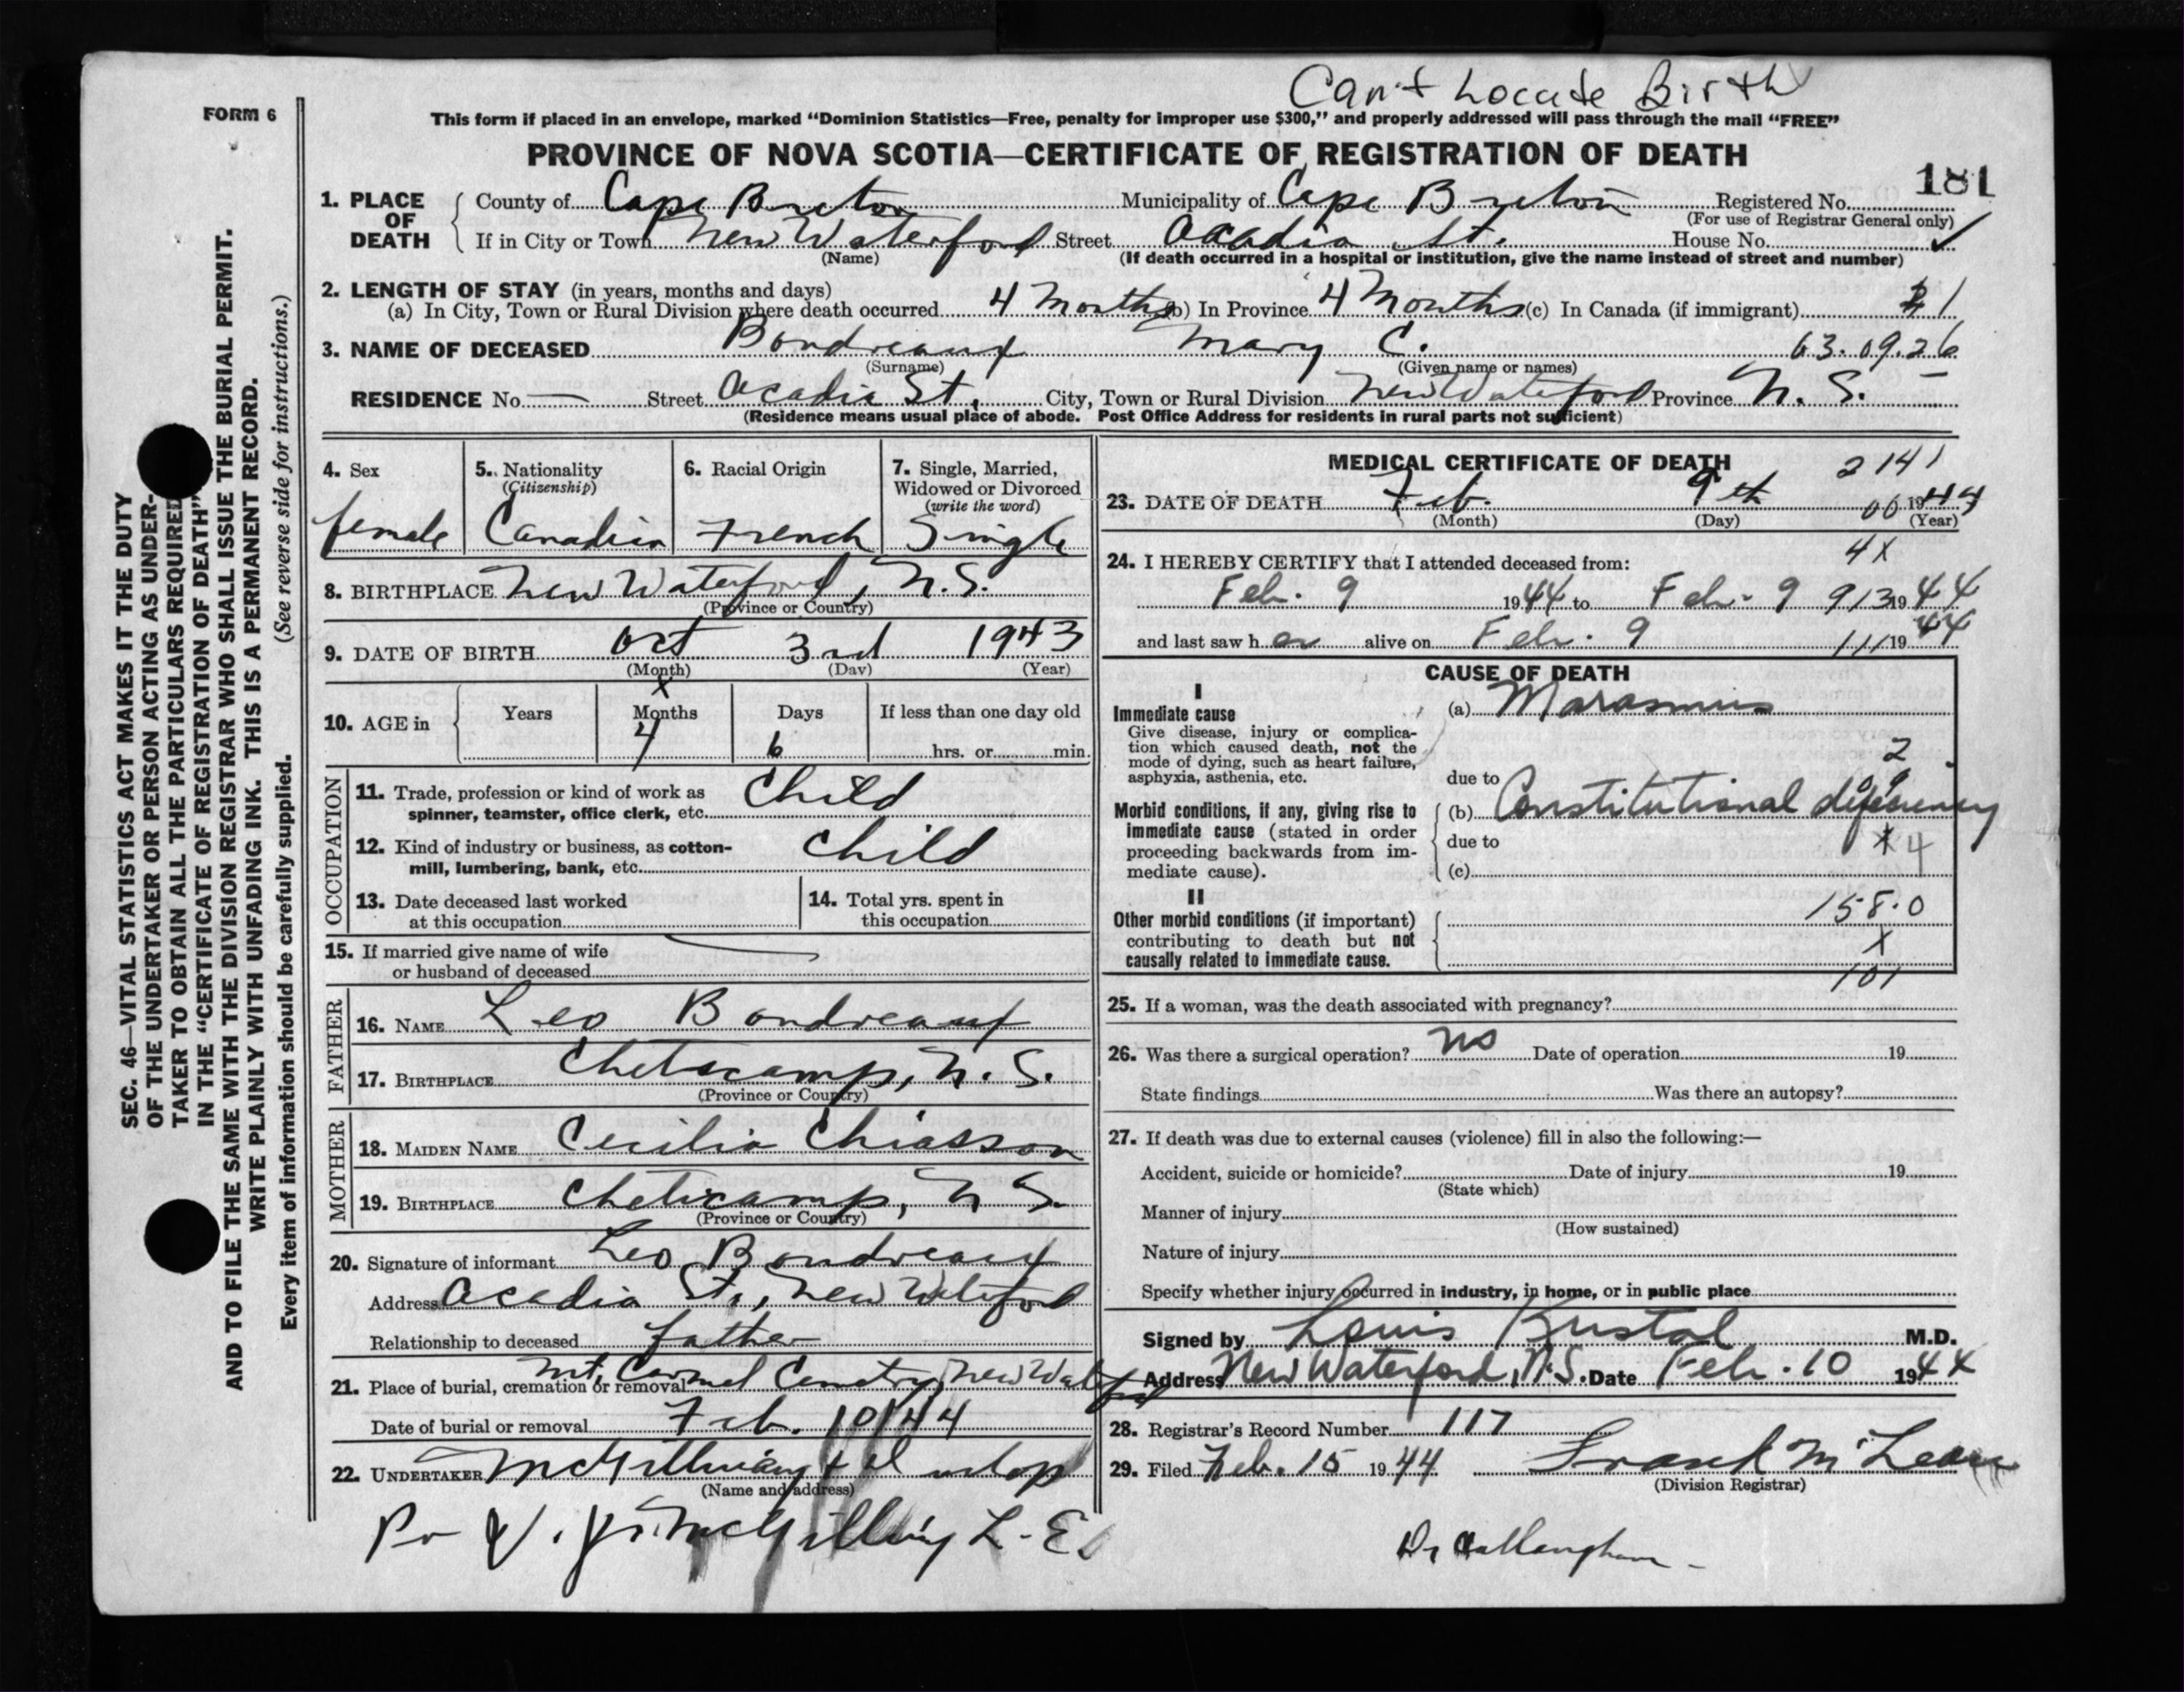 Can't Locate Birth
FORM 6
This form if placed in an envelope, marked "Dominion Statistics—Free, penalty for improper use $300," and properly addressed will pass through the mail "FREE"
PROVINCE OF NOVA SCOTIA—CERTIFICATE OF REGISTRATION OF DEATH
181
1. PLACE OF DEATH County of Cape Breton Municipality of Cape Breton Registered No.
(For use of Registrar General only)
If in City or Town New Waterford Street Acadia St. House No. ✓
(Name) (If death occurred in a hospital or institution, give the name instead of street and number)
2. LENGTH OF STAY (in years, months and days)
(a) In City, Town or Rural Division where death occurred 4 Months (b) In Province 4 Months (c) In Canada (if immigrant) 1
3. NAME OF DECEASED Boudreaux Mary C. 63.09.26
(Surname) (Given name or names)
RESIDENCE No. — Street Acadia St. City, Town or Rural Division New Waterford Province N. S.
(Residence means usual place of abode. Post Office Address for residents in rural parts not sufficient)
4. Sex
female
5. Nationality
(Citizenship)
Canadian
6. Racial Origin
French
7. Single, Married,
Widowed or Divorced
(write the word)
Single
8. BIRTHPLACE New Waterford, N.S.
(Province or Country)
9. DATE OF BIRTH Oct 3rd 1943
(Month) (Day) (Year)
x
10. AGE in Years Months Days If less than one day old
4 6 hrs. or min.
OCCUPATION
11. Trade, profession or kind of work as
spinner, teamster, office clerk, etc. Child
12. Kind of industry or business, as cotton-
mill, lumbering, bank, etc. Child
13. Date deceased last worked
at this occupation
14. Total yrs. spent in
this occupation
15. If married give name of wife
or husband of deceased
FATHER
16. NAME Leo Boudreaux
17. BIRTHPLACE Chetacamp, N. S.
(Province or Country)
MOTHER
18. MAIDEN NAME Cecilia Chiasson
19. BIRTHPLACE Cheticamp, N S.
(Province or Country)
20. Signature of informant Leo Boudreaux
Address Acadia St., New Waterford
Relationship to deceased father
21. Place of burial, cremation or removal Mt. Carmel Cemetry, New Waterford
Date of burial or removal Feb. 10/44
22. UNDERTAKER
(Name and address)
MEDICAL CERTIFICATE OF DEATH 2141
23. DATE OF DEATH Feb. 9th 00 1944
(Month) (Day) (Year)
4X
24. I HEREBY CERTIFY that I attended deceased from:
Feb. 9 1944 to Feb. 9 913 1944
and last saw her alive on Feb. 9 111 1944
CAUSE OF DEATH
I
Immediate cause
Give disease, injury or complica-
tion which caused death, not the
mode of dying, such as heart failure,
asphyxia, asthenia, etc.
(a) Marasmus
2
due to
Morbid conditions, if any, giving rise to
immediate cause (stated in order
proceeding backwards from im-
mediate cause).
(b) Constitutional deficiency
due to
4
(c)
II
Other morbid conditions (if important)
contributing to death but not
causally related to immediate cause.
158.0
X
101
25. If a woman, was the death associated with pregnancy?
26. Was there a surgical operation? no Date of operation 19
State findings Was there an autopsy?
27. If death was due to external causes (violence) fill in also the following:—
Accident, suicide or homicide? Date of injury 19
(State which)
Manner of injury
(How sustained)
Nature of injury
Specify whether injury occurred in industry, in home, or in public place
Signed by Louis M.D.
Address New Waterford, N.S. Date Feb. 10 1944
28. Registrar's Record Number 117
29. Filed Feb. 15 1944 Frank McLean
(Division Registrar)
SEC. 46—VITAL STATISTICS ACT MAKES IT THE DUTY
OF THE UNDERTAKER OR PERSON ACTING AS UNDER-
TAKER TO OBTAIN ALL THE PARTICULARS REQUIRED
IN THE "CERTIFICATE OF REGISTRATION OF DEATH"
AND TO FILE THE SAME WITH THE DIVISION REGISTRAR WHO SHALL ISSUE THE BURIAL PERMIT.
WRITE PLAINLY WITH UNFADING INK. THIS IS A PERMANENT RECORD.
Every item of information should be carefully supplied. (See reverse side for instructions.)